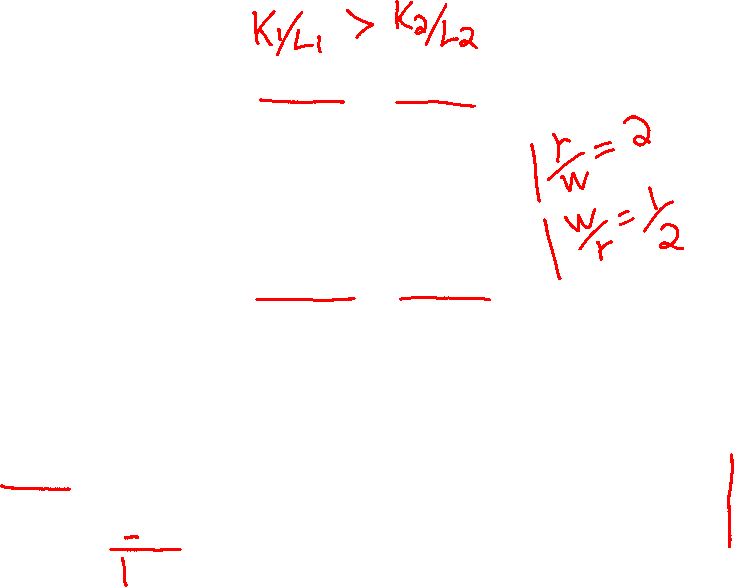 K1/L1 > K2/L2
r/w = 2
w/r = 1/2